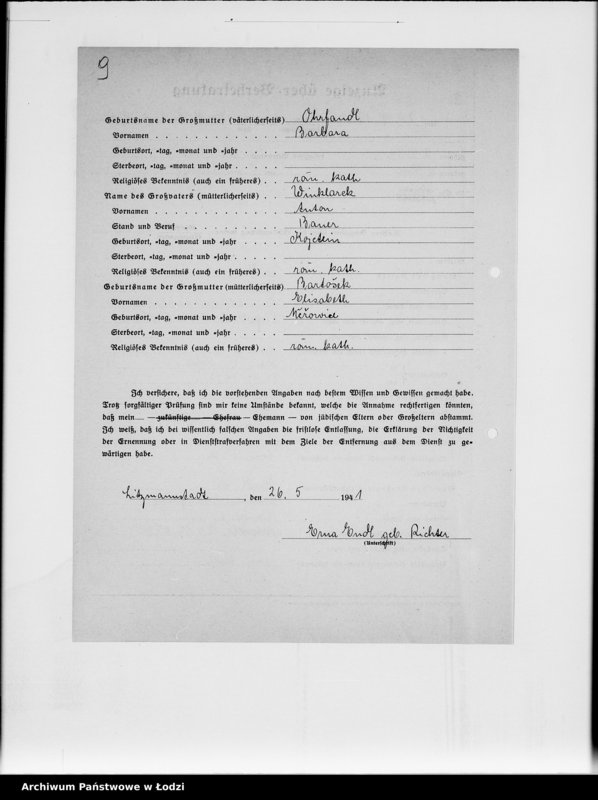 9
Geburtsname der Großmutter (väterlicherseits) Ohrfandl
Vornamen . . . . . . . . . . . . . Barbara
Geburtsort, -tag, -monat und -jahr . . . .
Sterbeort, -tag, -monat und -jahr . . . . .
Religiöses Bekenntnis (auch ein früheres) . . röm. kath
Name des Großvaters (mütterlicherseits) . . Winklarek
Vornamen . . . . . . . . . . . . . Anton
Stand und Beruf . . . . . . . . . . Bauer
Geburtsort, -tag, -monat und -jahr . . . . Kojetein
Sterbeort, -tag, -monat und -jahr . . . . .
Religiöses Bekenntnis (auch ein früheres) . . röm. kath.
Geburtsname der Großmutter (mütterlicherseits) Bartošek
Vornamen . . . . . . . . . . . . . Elisabeth
Geburtsort, -tag, -monat und -jahr . . . .
Sterbeort, -tag, -monat und -jahr . . . . .
Religiöses Bekenntnis (auch ein früheres) . . röm. kath.
Ich versichere, daß ich die vorstehenden Angaben nach bestem Wissen und Gewissen gemacht habe.
Trotz sorgfältiger Prüfung sind mir keine Umstände bekannt, welche die Annahme rechtfertigen könnten,
daß mein — zukünftige — Ehefrau — Ehemann — von jüdischen Eltern oder Großeltern abstammt.
Ich weiß, daß ich bei wissentlich falschen Angaben die fristlose Entlassung, die Erklärung der Nichtigkeit
der Ernennung oder in Dienststrafverfahren mit dem Ziele der Entfernung aus dem Dienst zu ge-
wärtigen habe.
Litzmannstadt, den 26. 5 1941
Erna Endl geb. Richter
(Unterschrift)
Archiwum Państwowe w Łodzi